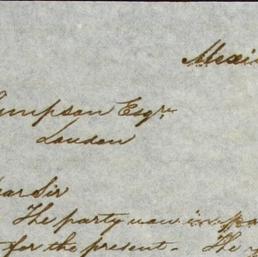 Mexi
umpson Esqr
London
ear Sir
The party now
for the present - The